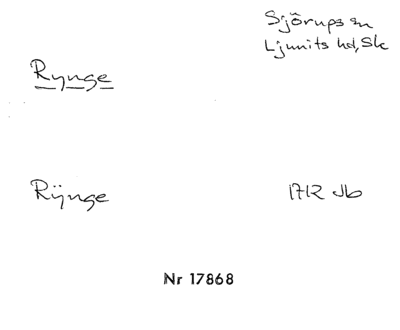 Sjörups sn
Ljunits hd, Sk
Rynge
Rÿnge
1712 Jb
Nr 17868